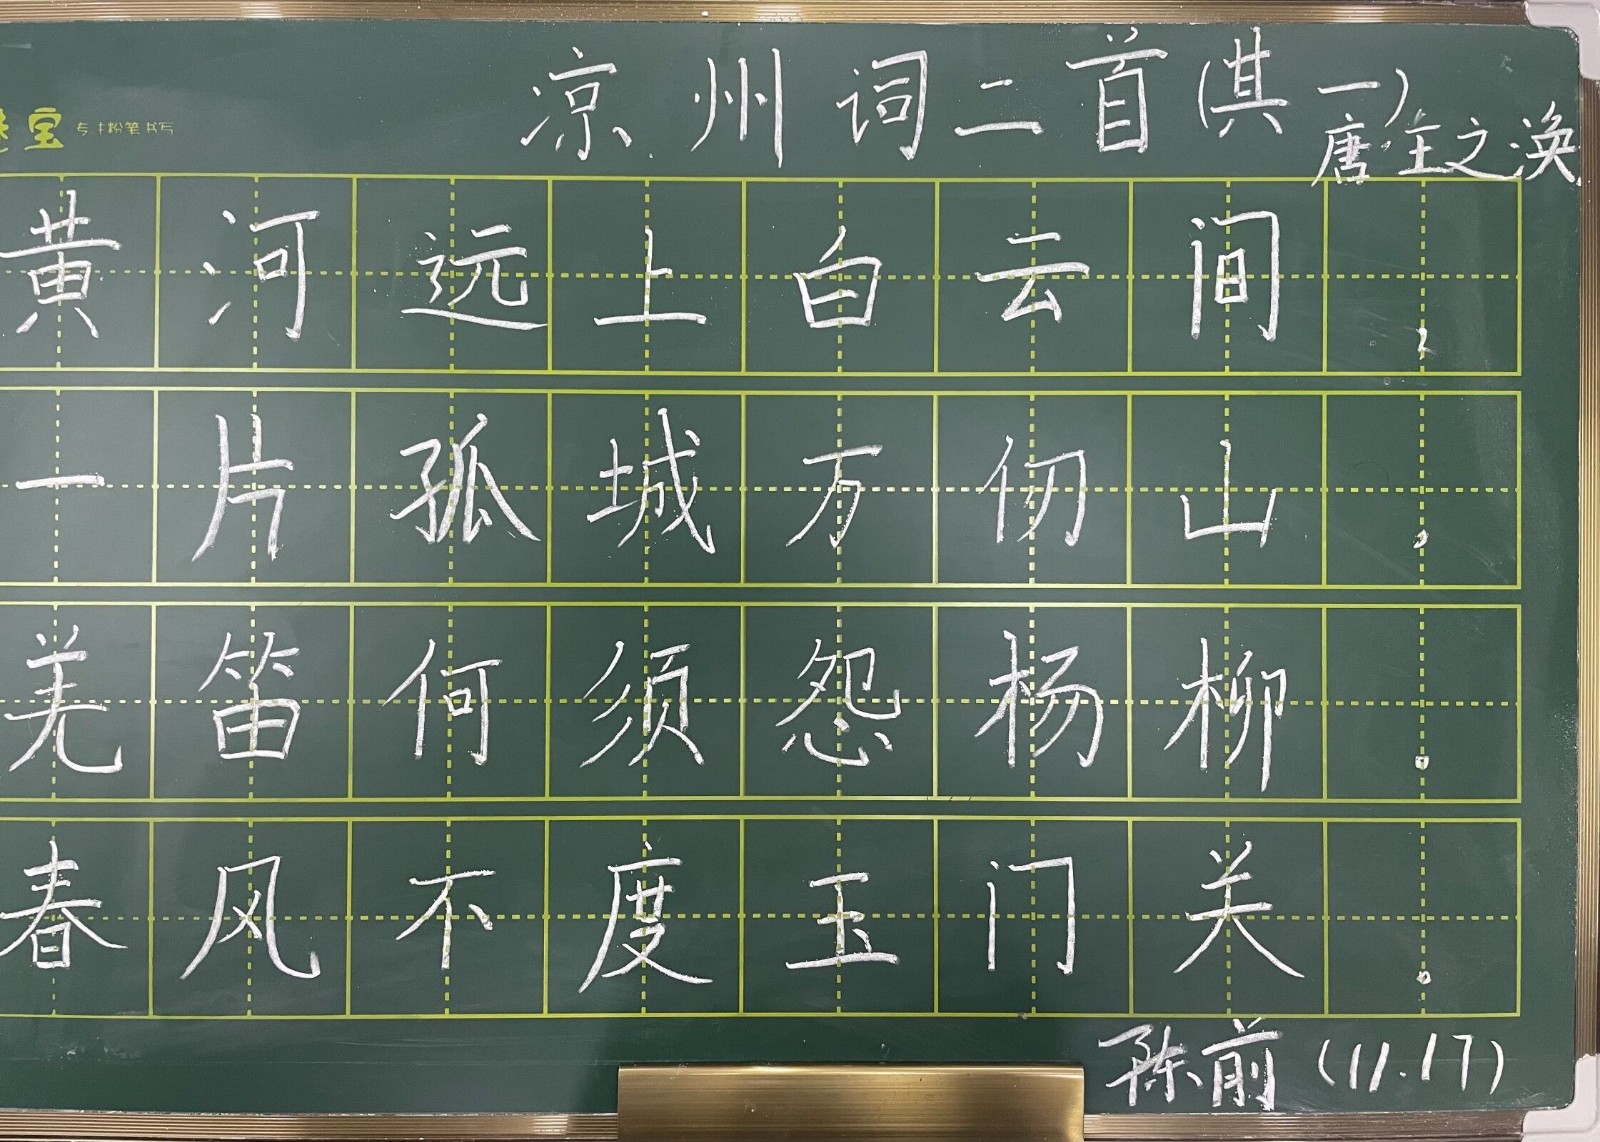 凉州词二首(其一)
唐·王之涣
宝 专才粉笔书写
黄河远上白云间，
一片孤城万仞山，
羌笛何须怨杨柳。
春风不度玉门关。
陈前(11.17)